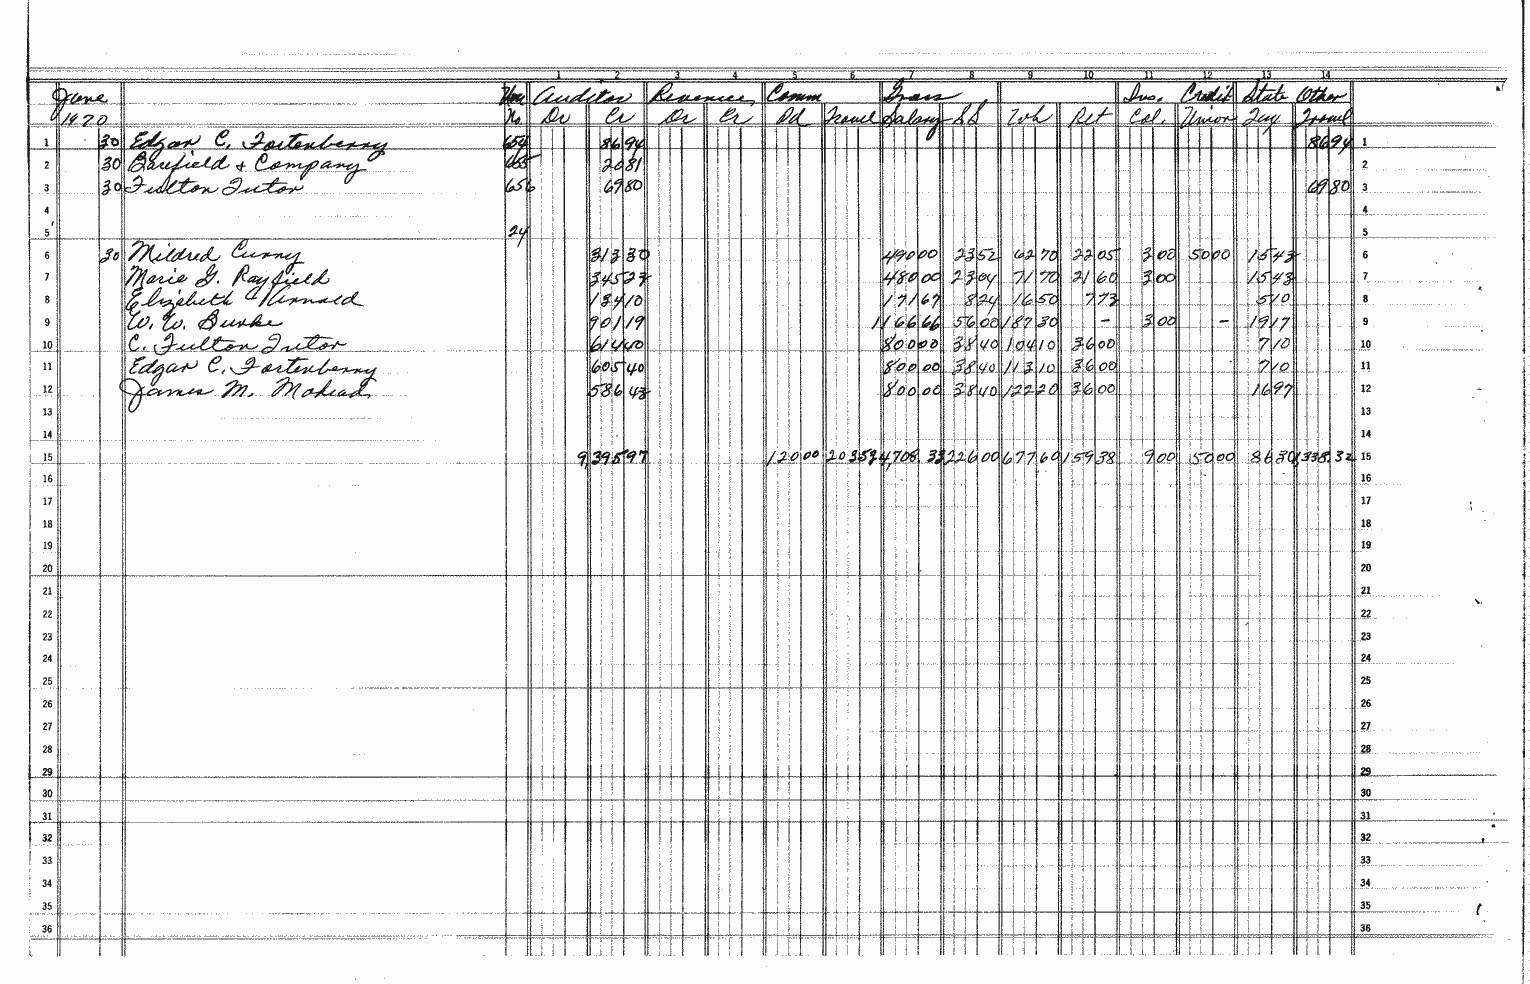 1 2 3 4 5 6 7 8 9 10 11 12 13 14
June Auditor Revenues Comm Gross Ins. Credit State Other
1970 No. Dr Cr Dr Cr Pd Travel Salary SS Wh Ret Col. Union Tax Travel
1 30 Edgar C. Fortenberry 654 8694 8694 1
2 30 Barefield & Company 655 2081 2
3 30 Fulton Tutor 656 6980 6980 3
4 4
5 24 5
6 30 Mildred Curry 31330 49000 2352 6270 2205 300 5000 1543 6
7 Marie G. Rayfield 34523 48000 2304 7170 2160 300 1543 7
8 Elizabeth Arnold 13410 17167 824 1650 773 510 8
9 W. W. Burke 90119 116666 5600 18730 - 300 - 1917 9
10 C. Fulton Tutor 61440 80000 3840 10410 3600 710 10
11 Edgar C. Fortenberry 60540 80000 3840 11310 3600 710 11
12 James M. Mohead 58643 80000 3840 12220 3600 1697 12
13 13
14 14
15 9,39597 12000 20353 4,708.33 22600 67760 15938 900 5000 8630 1,338.32 15
16 16
17 17
18 18
19 19
20 20
21 21
22 22
23 23
24 24
25 25
26 26
27 27
28 28
29 29
30 30
31 31
32 32
33 33
34 34
35 35
36 36